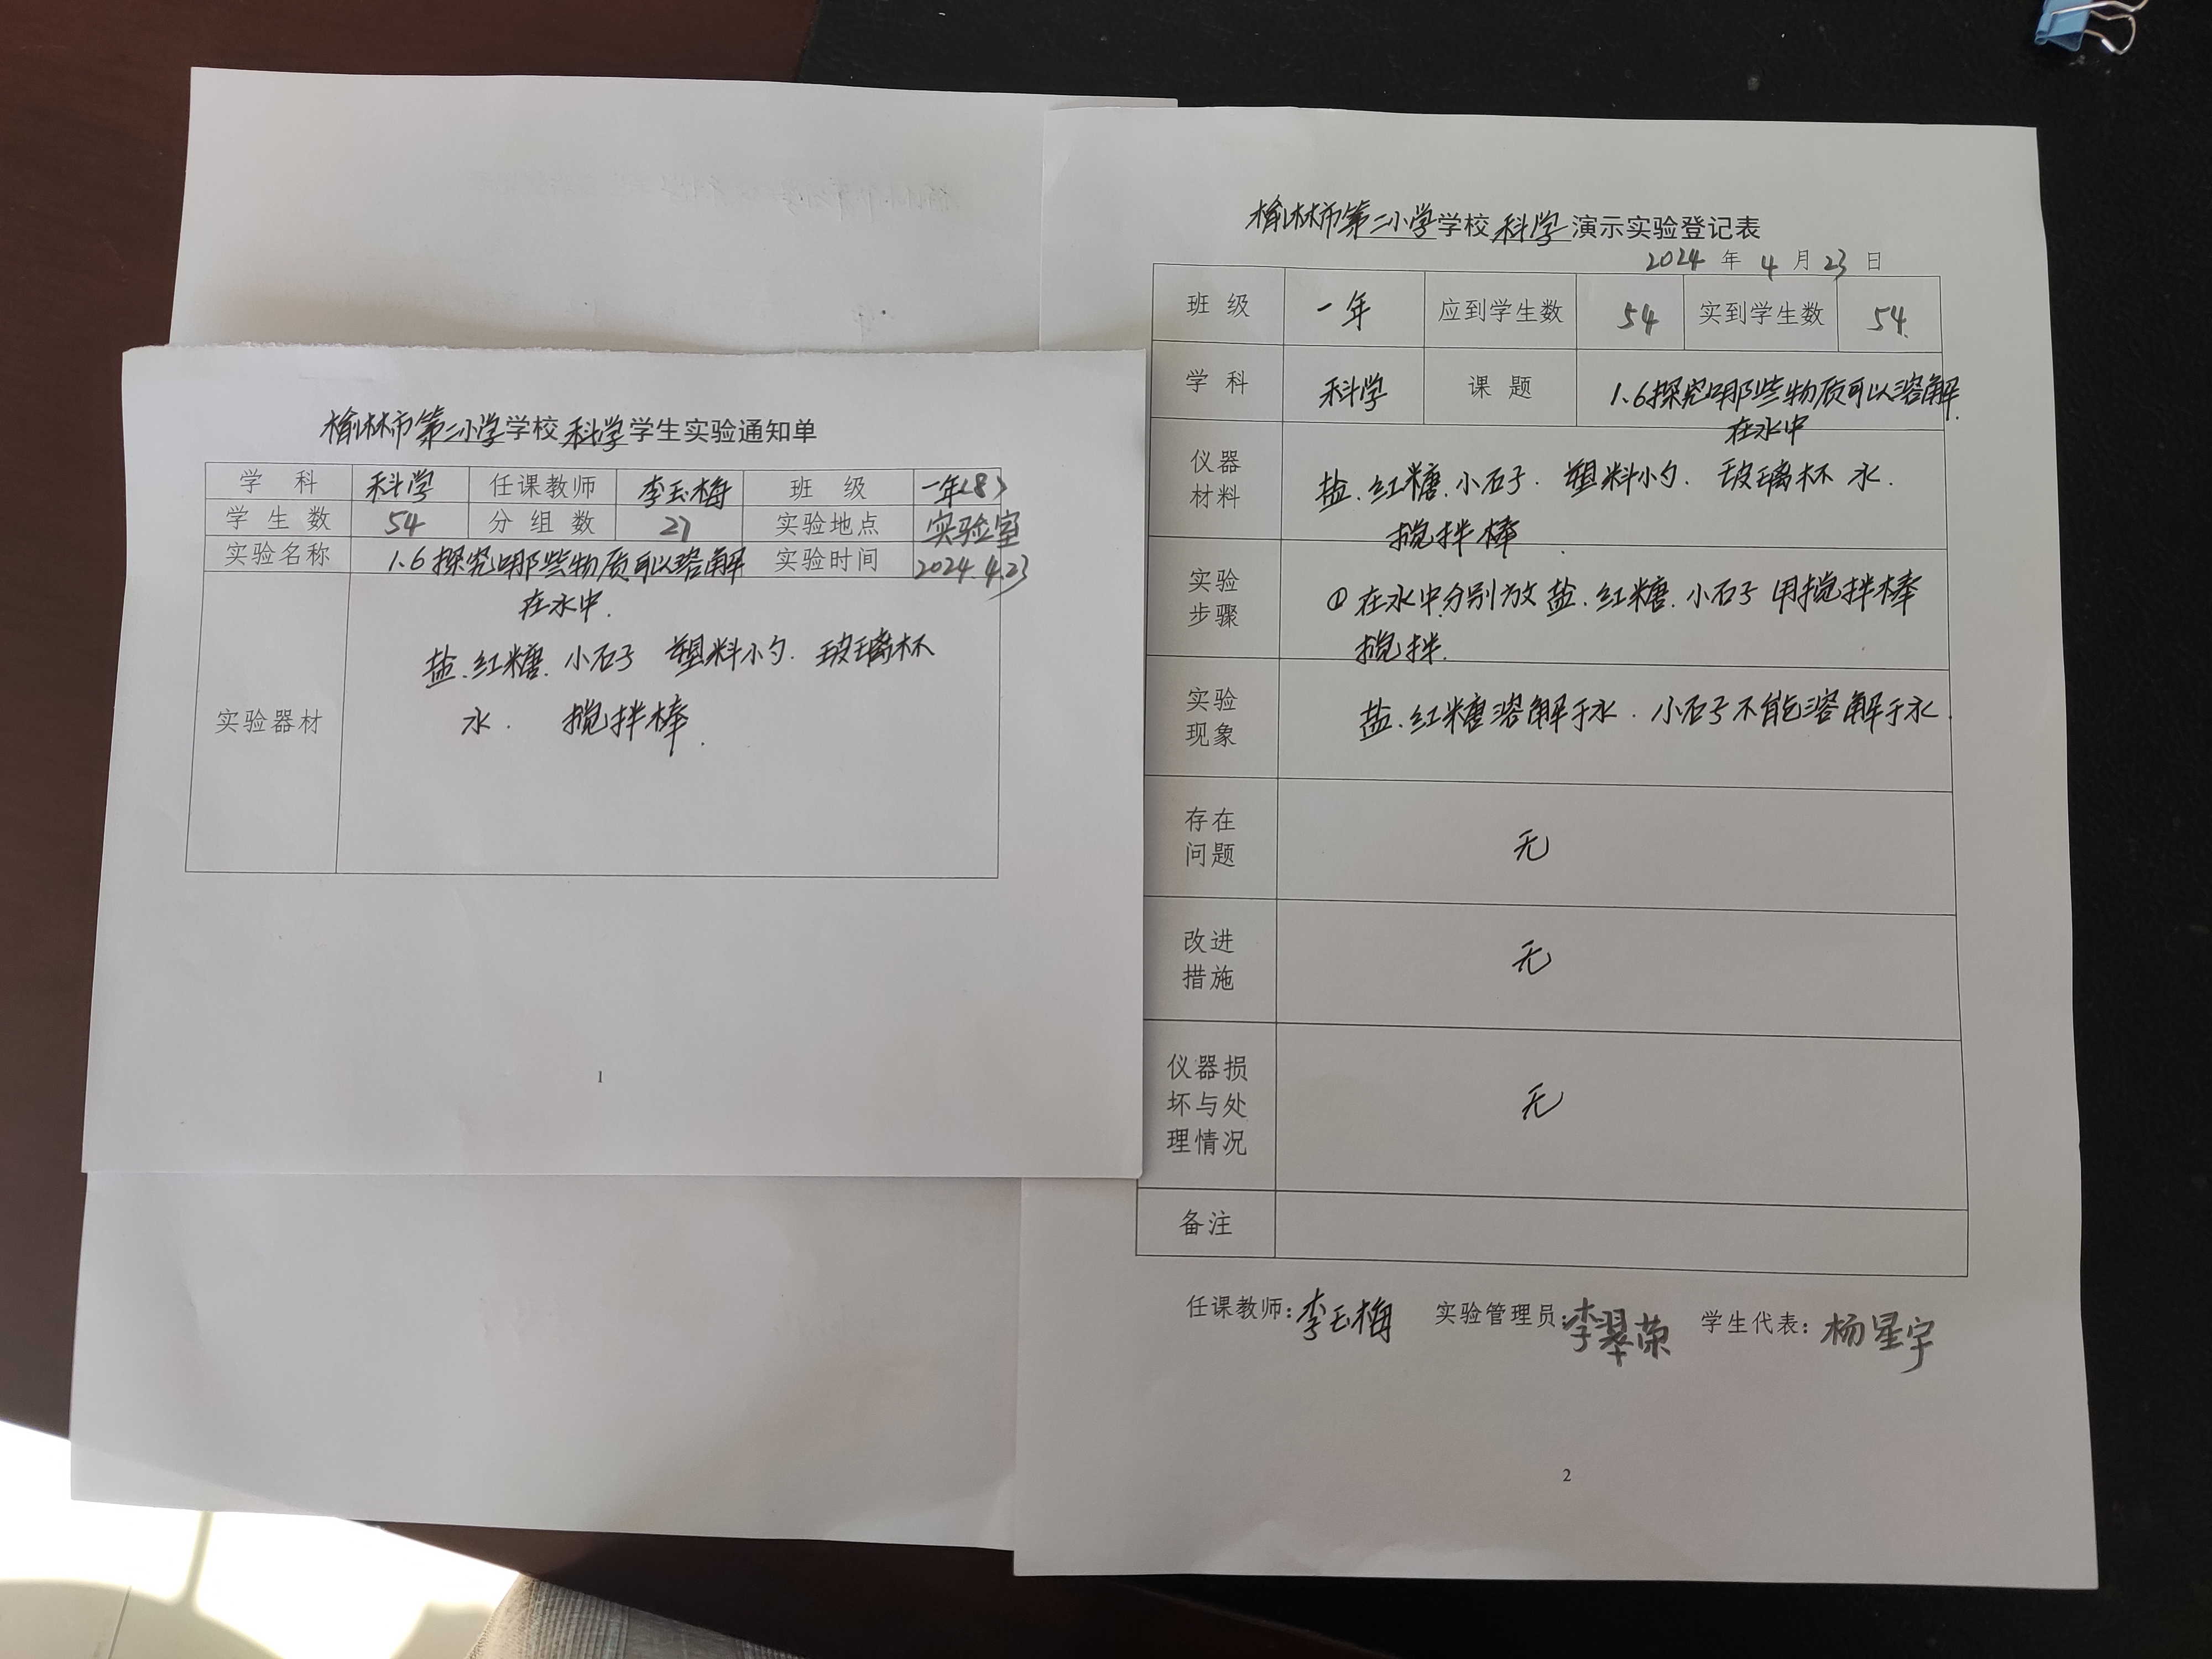 榆林市第二小学学校 科学 学生实验通知单
学 科 科学 任课教师 李玉梅 班 级 一年(8)
学 生 数 54 分 组 数 27 实验地点 实验室
实验名称 1.6探究哪些物质可以溶解 实验时间 2024.4.23
在水中.
实验器材 盐.红糖.小石子 塑料小勺. 玻璃杯
水. 搅拌棒.
1
榆林市第二小学学校 科学 演示实验登记表
2024 年 4 月 23 日
班 级 一年 应到学生数 54 实到学生数 54.
学 科 科学 课 题 1.6探究哪些物质可以溶解.
在水中
仪器
材料
盐.红糖.小石子. 塑料小勺. 玻璃杯 水.
搅拌棒.
实验
步骤
①在水中分别放盐.红糖.小石子用搅拌棒
搅拌.
实验
现象
盐.红糖溶解于水.小石子不能溶解于水.
存在
问题
无
改进
措施
无
仪器损
坏与处
理情况
无
备注
任课教师:李玉梅 实验管理员:李翠荣 学生代表:杨星宇
2